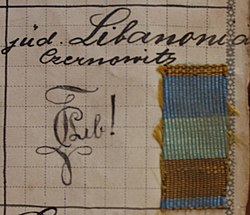 jüd. Libanonia
Czernowitz
Lib!